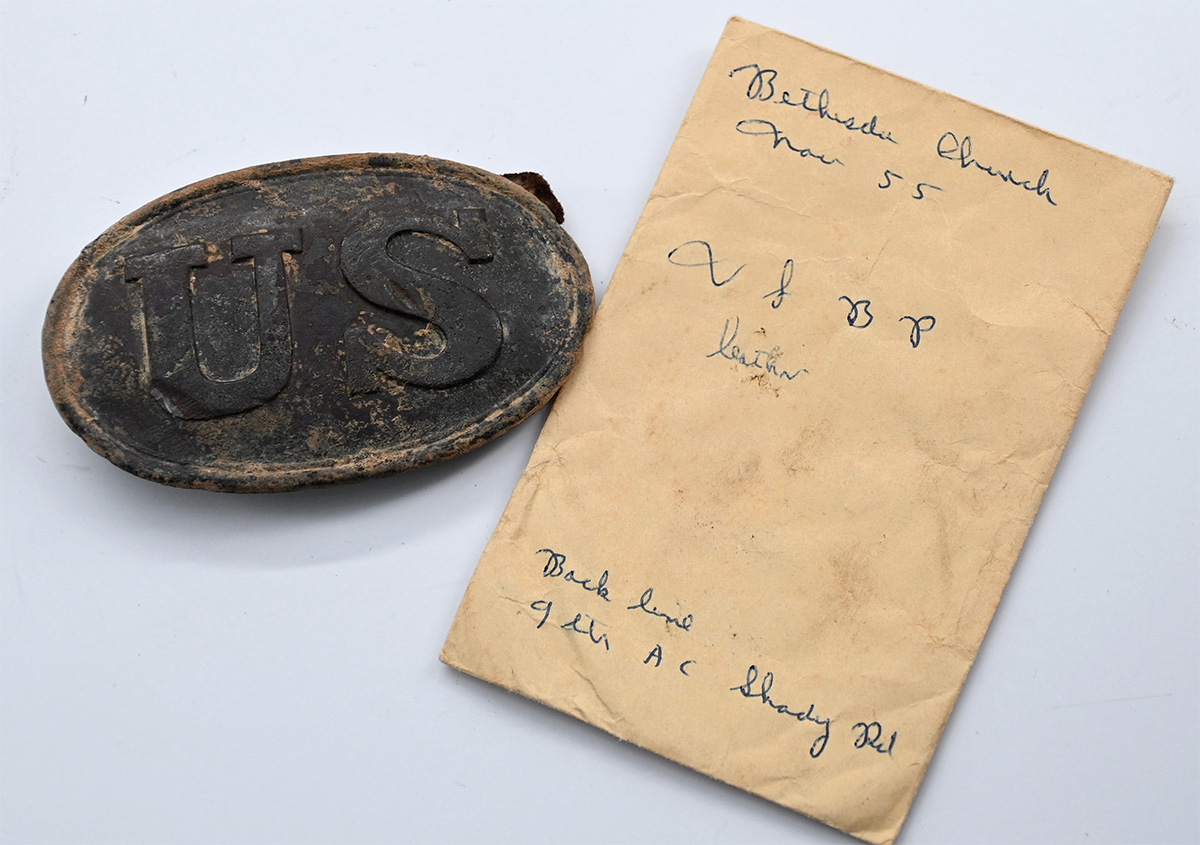 US
Bethesda Church
Nov 55
U S B P
leather
Back line
9 th A C Shady Rd